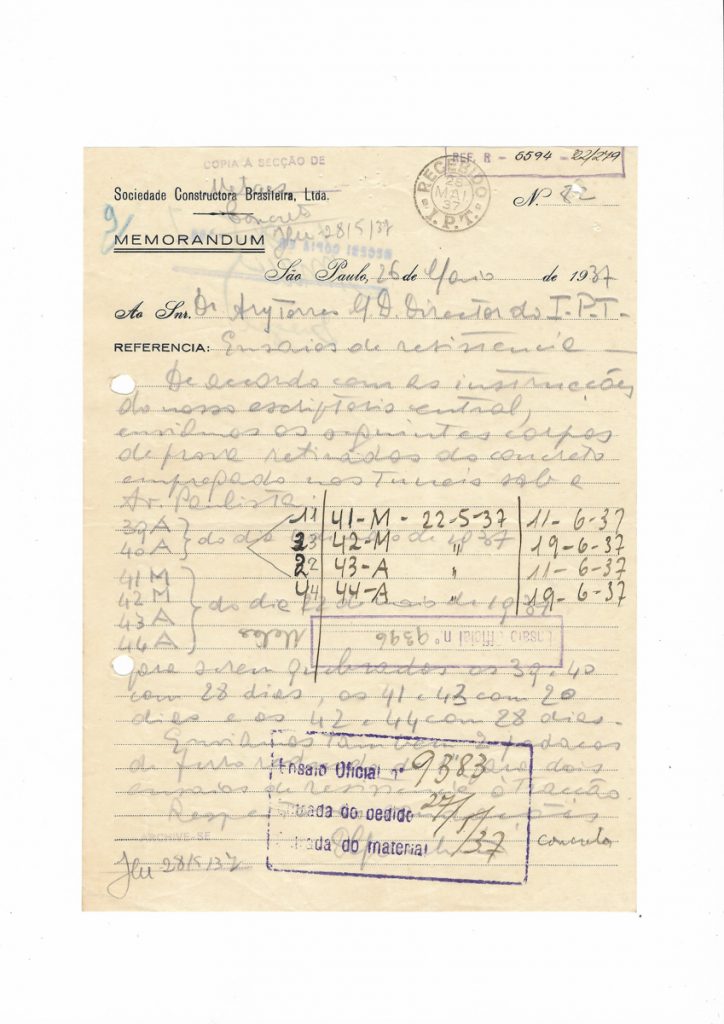 COPIA Á SECÇÃO DE
REF. R - 6594 - 22/219
Metaes
Concreto
28/5/37
RECEBIDO
26
MAI
37
I.P.T.
Sociedade Constructora Brasileira, Ltda.
N.º 22
MEMORANDUM
RECEBI COPIA EM
São Paulo, 26 de Maio de 1937
Ao Snr. Dr Ary Torres D. Director do I.P.T.
REFERENCIA: Ensaios de resistencia
De accordo com as instrucções
do nosso escriptorio central,
enviamos os seguintes corpos
de prova retirados do concreto
empregado nos tuneis sob a
Av. Paulista
39 A
40 A
do dia de 1937
11 41-M - 22-5-37 11-6-37
33 42-M " 19-6-37
22 43-A " 11-6-37
44 44-A " 19-6-37
41 M
42 M
43 A
44 A
do dia 22 de maio de 1937
Ensaio Oficial nº 9396
Metaes
para serem quebrados os 39 e 40
com 28 dias, os 41 e 43 com 20
dias e os 42 e 44 com 28 dias.
Enviamos tambem 2 pedaços
de ferro para dois
ensaios de resistencia a tracção.
Ensaio Oficial nº 9383
Entrada do pedido 27/5/37
Entrada do material
concreto
ARCHIVE-SE
28/5/37